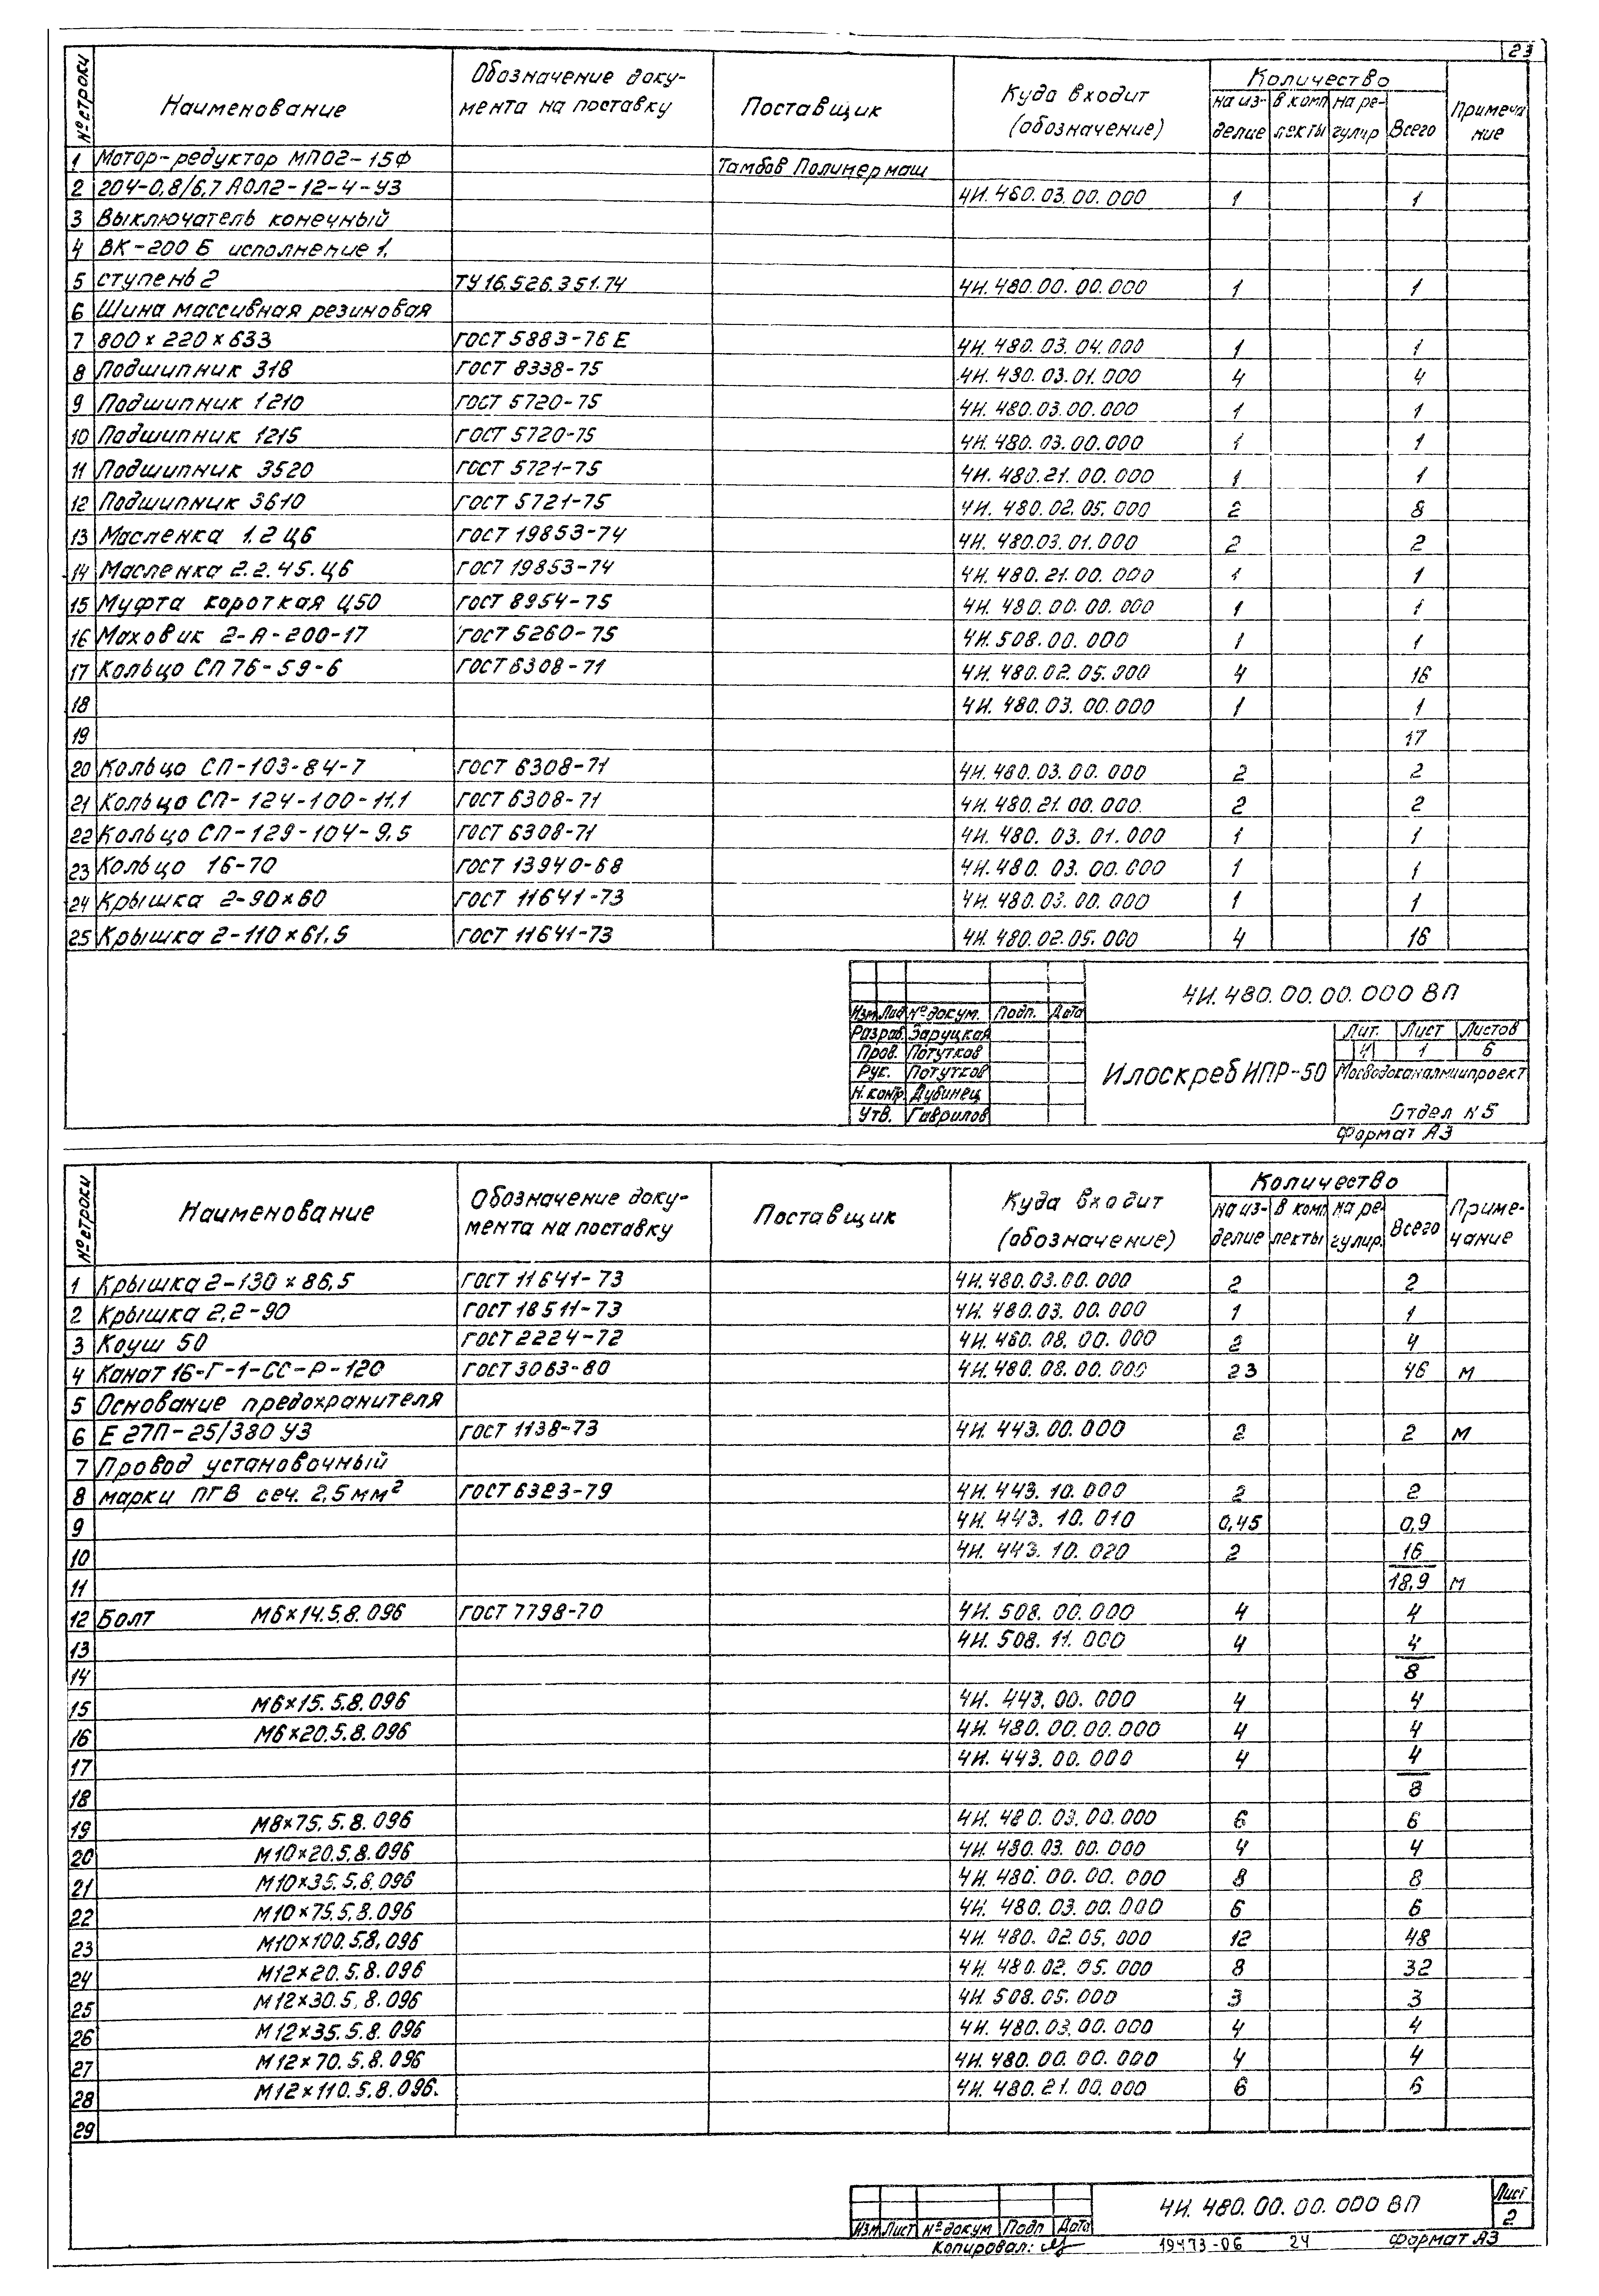 23
№ строки Наименование Обозначение доку- мента на поставку Поставщик Куда входит (обозначение) Количество на из- делие в комп лекты на ре- гулир Всего Примеча ние
1 Мотор-редуктор МП02-15Ф Тамбов Полимермаш
2 204-0,8/6,7 АОЛ2-12-4-У3 4И.480.03.00.000 1 1
3 Выключатель конечный
4 ВК-200 Б исполнение 1,
5 ступень 2 ТУ16.526.351.74 4И.480.00.00.000 1 1
6 Шина массивная резиновая
7 800×220×633 ГОСТ 5883-76 Е 4И.480.03.04.000 1 1
8 Подшипник 318 ГОСТ 8338-75 4И.480.03.01.000 4 4
9 Подшипник 1210 ГОСТ 5720-75 4И.480.03.00.000 1 1
10 Подшипник 1215 ГОСТ 5720-75 4И.480.03.00.000 1 1
11 Подшипник 3520 ГОСТ 5721-75 4И.480.21.00.000 1 1
12 Подшипник 3610 ГОСТ 5721-75 4И.480.02.05.000 2 8
13 Масленка 1.2 Ц6 ГОСТ 19853-74 4И.480.03.01.000 2 2
14 Масленка 2.2.45.Ц6 ГОСТ 19853-74 4И.480.21.00.000 1 1
15 Муфта короткая Ц50 ГОСТ 8954-75 4И.480.00.00.000 1 1
16 Маховик 2-А-200-17 ГОСТ 5260-75 4И.508.00.000 1 1
17 Кольцо СП 76-59-6 ГОСТ 6308-71 4И.480.02.05.000 4 16
18 4И.480.03.00.000 1 1
19 17
20 Кольцо СП-103-84-7 ГОСТ 6308-71 4И.480.03.00.000 2 2
21 Кольцо СП-124-100-11,1 ГОСТ 6308-71 4И.480.21.00.000 2 2
22 Кольцо СП-129-104-9,5 ГОСТ 6308-71 4И.480.03.01.000 1 1
23 Кольцо 16-70 ГОСТ 13940-68 4И.480.03.00.000 1 1
24 Крышка 2-90×60 ГОСТ 11641-73 4И.480.03.00.000 1 1
25 Крышка 2-110×61,5 ГОСТ 11641-73 4И.480.02.05.000 4 16
4И.480.00.00.000 ВП
Изм Лист № докум. Подп. Дата
Разраб. Заруцкая
Пров. Потутков
Рук. Потутков
Н.контр. Дубинец
Утв. Гаврилов
Илоскреб ИПР-50
Лит. Лист Листов
И 1 6
Мосводоканалниипроект
Отдел №5
Формат А3
№ строки Наименование Обозначение доку- мента на поставку Поставщик Куда входит (обозначение) Количество на из- делие в комп лекты на ре- гулир. Всего Приме- чание
1 Крышка 2-130×86,5 ГОСТ 11641-73 4И.480.03.00.000 2 2
2 Крышка 2,2-90 ГОСТ 18511-73 4И.480.03.00.000 1 1
3 Коуш 50 ГОСТ 2224-72 4И.480.08.00.000 2 4
4 Канат 16-Г-1-СС-Р-120 ГОСТ 3063-80 4И.480.08.00.000 23 46 м
5 Основание предохранителя
6 Е 27П-25/380 У3 ГОСТ 1138-73 4И.443.00.000 2 2 м
7 Провод установочный
8 марки ПГВ сеч. 2,5мм² ГОСТ 6323-79 4И.443.10.000 2 2
9 4И.443.10.010 0,45 0,9
10 4И.443.10.020 2 16
11 18,9 м
12 Болт М6×14.5.8.096 ГОСТ 7798-70 4И.508.00.000 4 4
13 4И.508.11.000 4 4
14 8
15 М6×15.5.8.096 4И.443.00.000 4 4
16 М6×20.5.8.096 4И.480.00.00.000 4 4
17 4И.443.00.000 4 4
18 8
19 М8×75.5.8.096 4И.480.03.00.000 6 6
20 М10×20.5.8.096 4И.480.03.00.000 4 4
21 М10×35.5.8.096 4И.480.00.00.000 8 8
22 М10×75.5.8.096 4И.480.03.00.000 6 6
23 М10×100.5.8.096 4И.480.02.05.000 12 48
24 М12×20.5.8.096 4И.480.02.05.000 8 32
25 М12×30.5.8.096 4И.508.05.000 3 3
26 М12×35.5.8.096 4И.480.03.00.000 4 4
27 М12×70.5.8.096 4И.480.00.00.000 4 4
28 М12×110.5.8.096. 4И.480.21.00.000 6 6
29
Изм Лист № докум Подп Дата
4И.480.00.00.000 ВП
Лист 2
Копировал: 19473-06 24 Формат А3